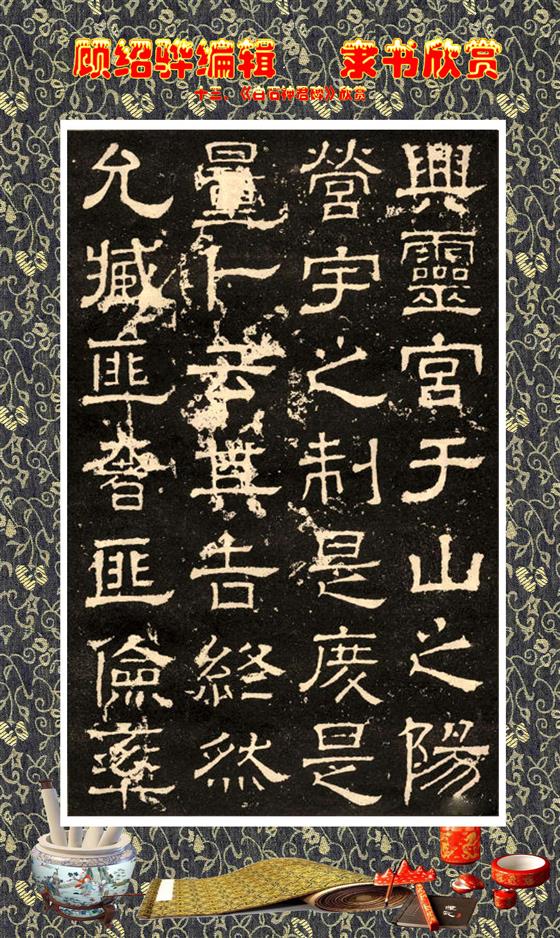 顾绍骅编辑 隶书欣赏
十三、《白石神君碑》欣赏
興靈宮于山之陽
營宇之制是度是
量卜云其吉終然
允臧匪奢匪儉率